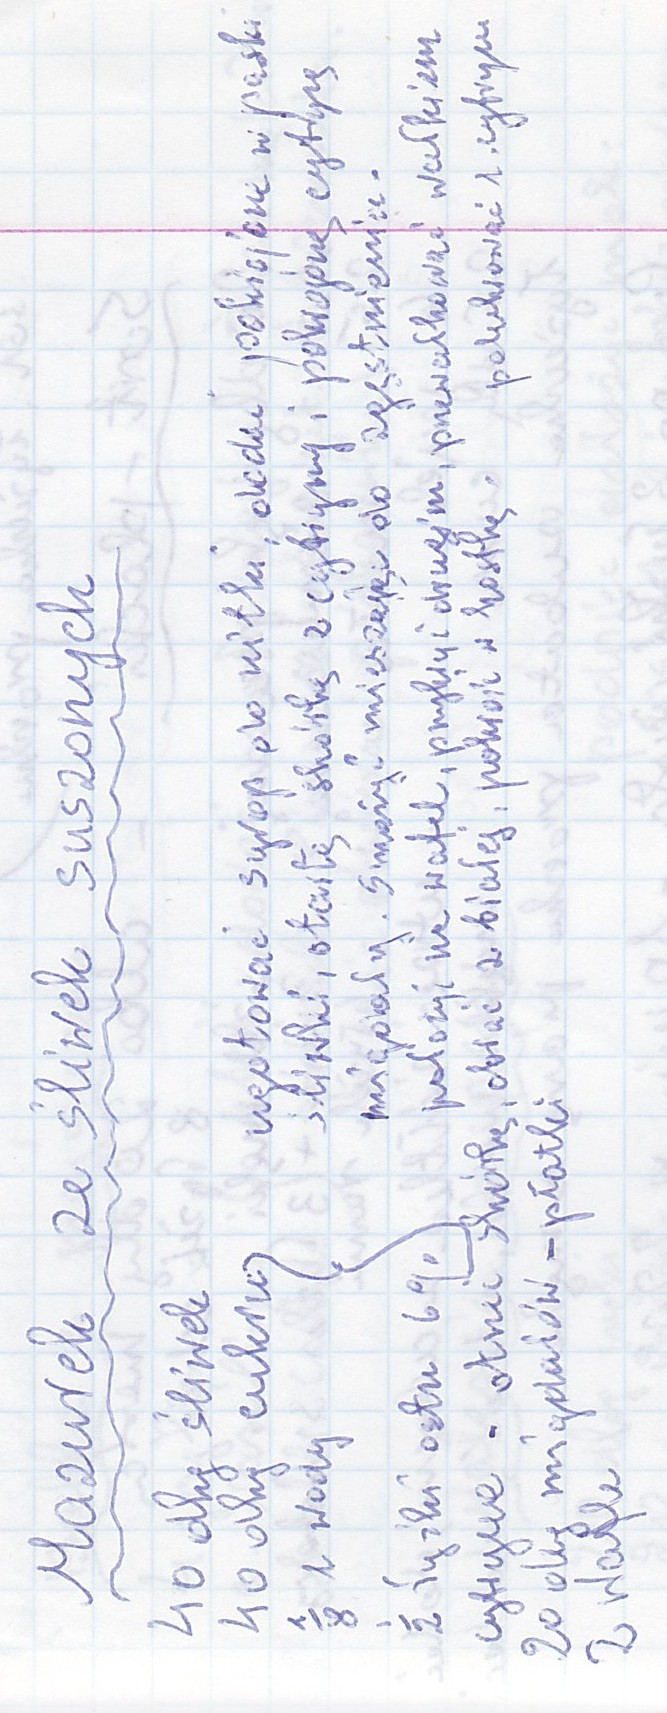 Mazurek ze śliwek suszonych
40 dkg śliwek
40 dkg cukru
1/8 l wody
1/2 łyżki octu 6%
cytryna - otrzeć skórkę, obrać z białej, pokroić w kostkę.
20 dkg migdałów - płatki
2 wafle
ugotować syrop do nitki, dodać pokrojone w paski
śliwki, otartą skórkę z cytryny i pokrojoną cytrynę
migdały. Smażyć mieszając do zgęstnienia.
położyć na wafel, przykryć drugim, przewałkować wałkiem
polukrować l. cytryn